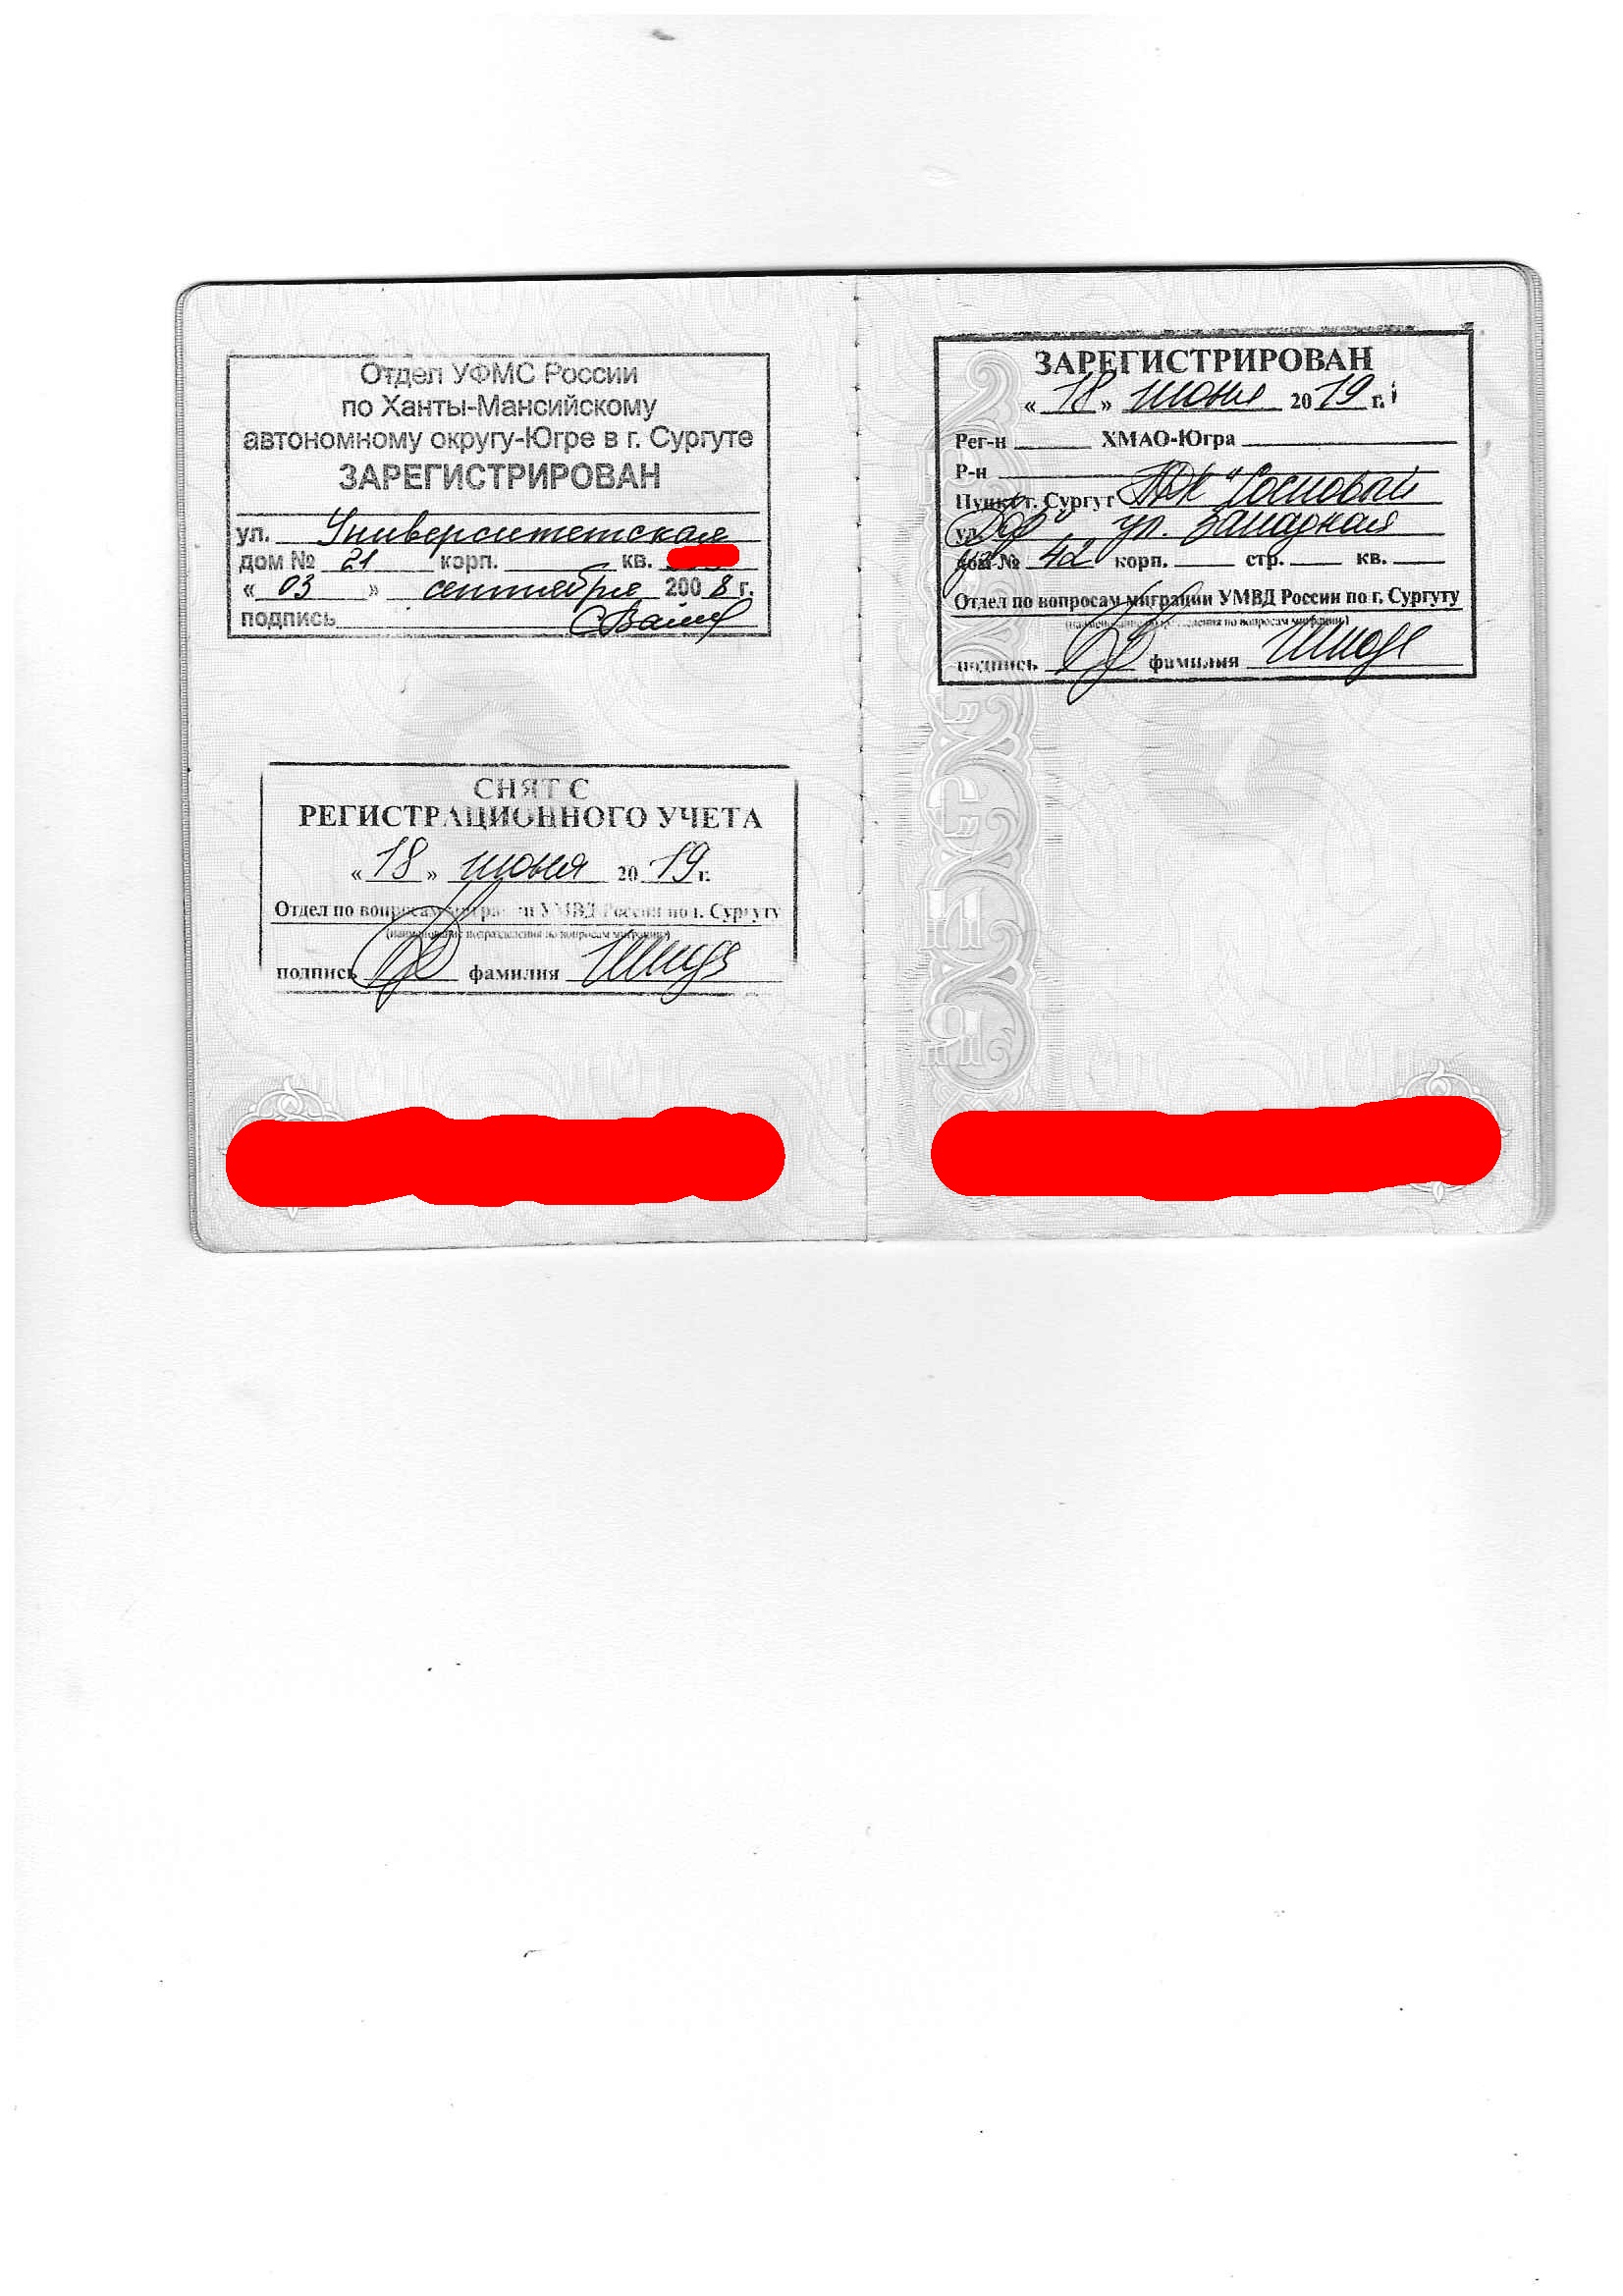 Отдел УФМС России
по Ханты-Мансийскому
автономному округу-Югре в г. Сургуте
ЗАРЕГИСТРИРОВАН
ул. Университетская
дом № 21 корп. кв.
« 03 » сентября 2008 г.
подпись
СНЯТ С
РЕГИСТРАЦИОННОГО УЧЕТА
« 18 » июня 2019 г.
Отдел по вопросам миграции УМВД России по г. Сургуту
(наименование подразделения по вопросам миграции)
подпись фамилия
ЗАРЕГИСТРИРОВАН
« 18 » июня 2019 г.
Рег-н ХМАО-Югра
Р-н
Пункт г. Сургут "Сосновый
ул. Бор" ул. Западная
дом № 42 корп. стр. кв.
Отдел по вопросам миграции УМВД России по г. Сургуту
(наименование подразделения по вопросам миграции)
подпись фамилия